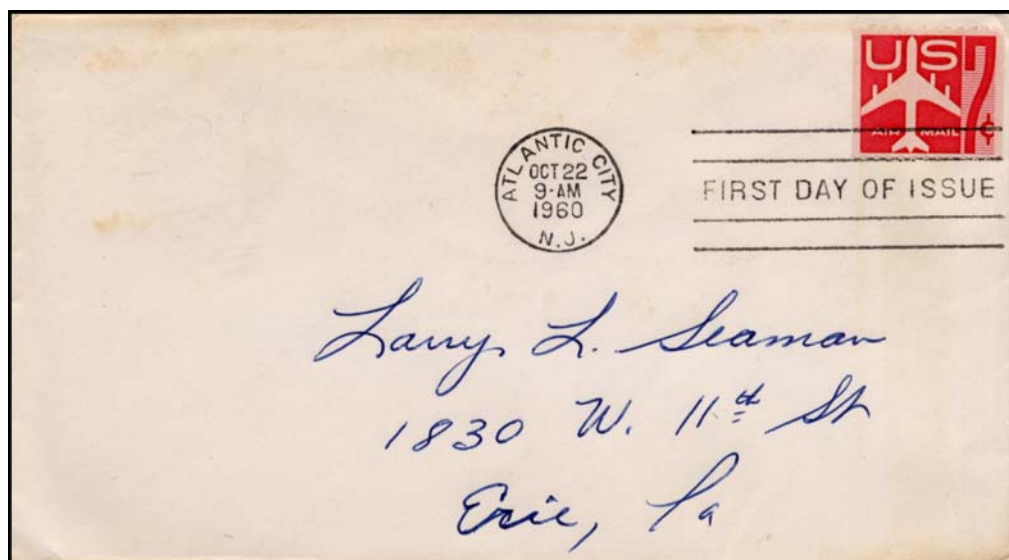 US 7¢
AIR MAIL
ATLANTIC CITY
OCT 22
9-AM
1960
N.J.
FIRST DAY OF ISSUE
Larry L. Seaman
1830 W. 11th St
Erie, Pa